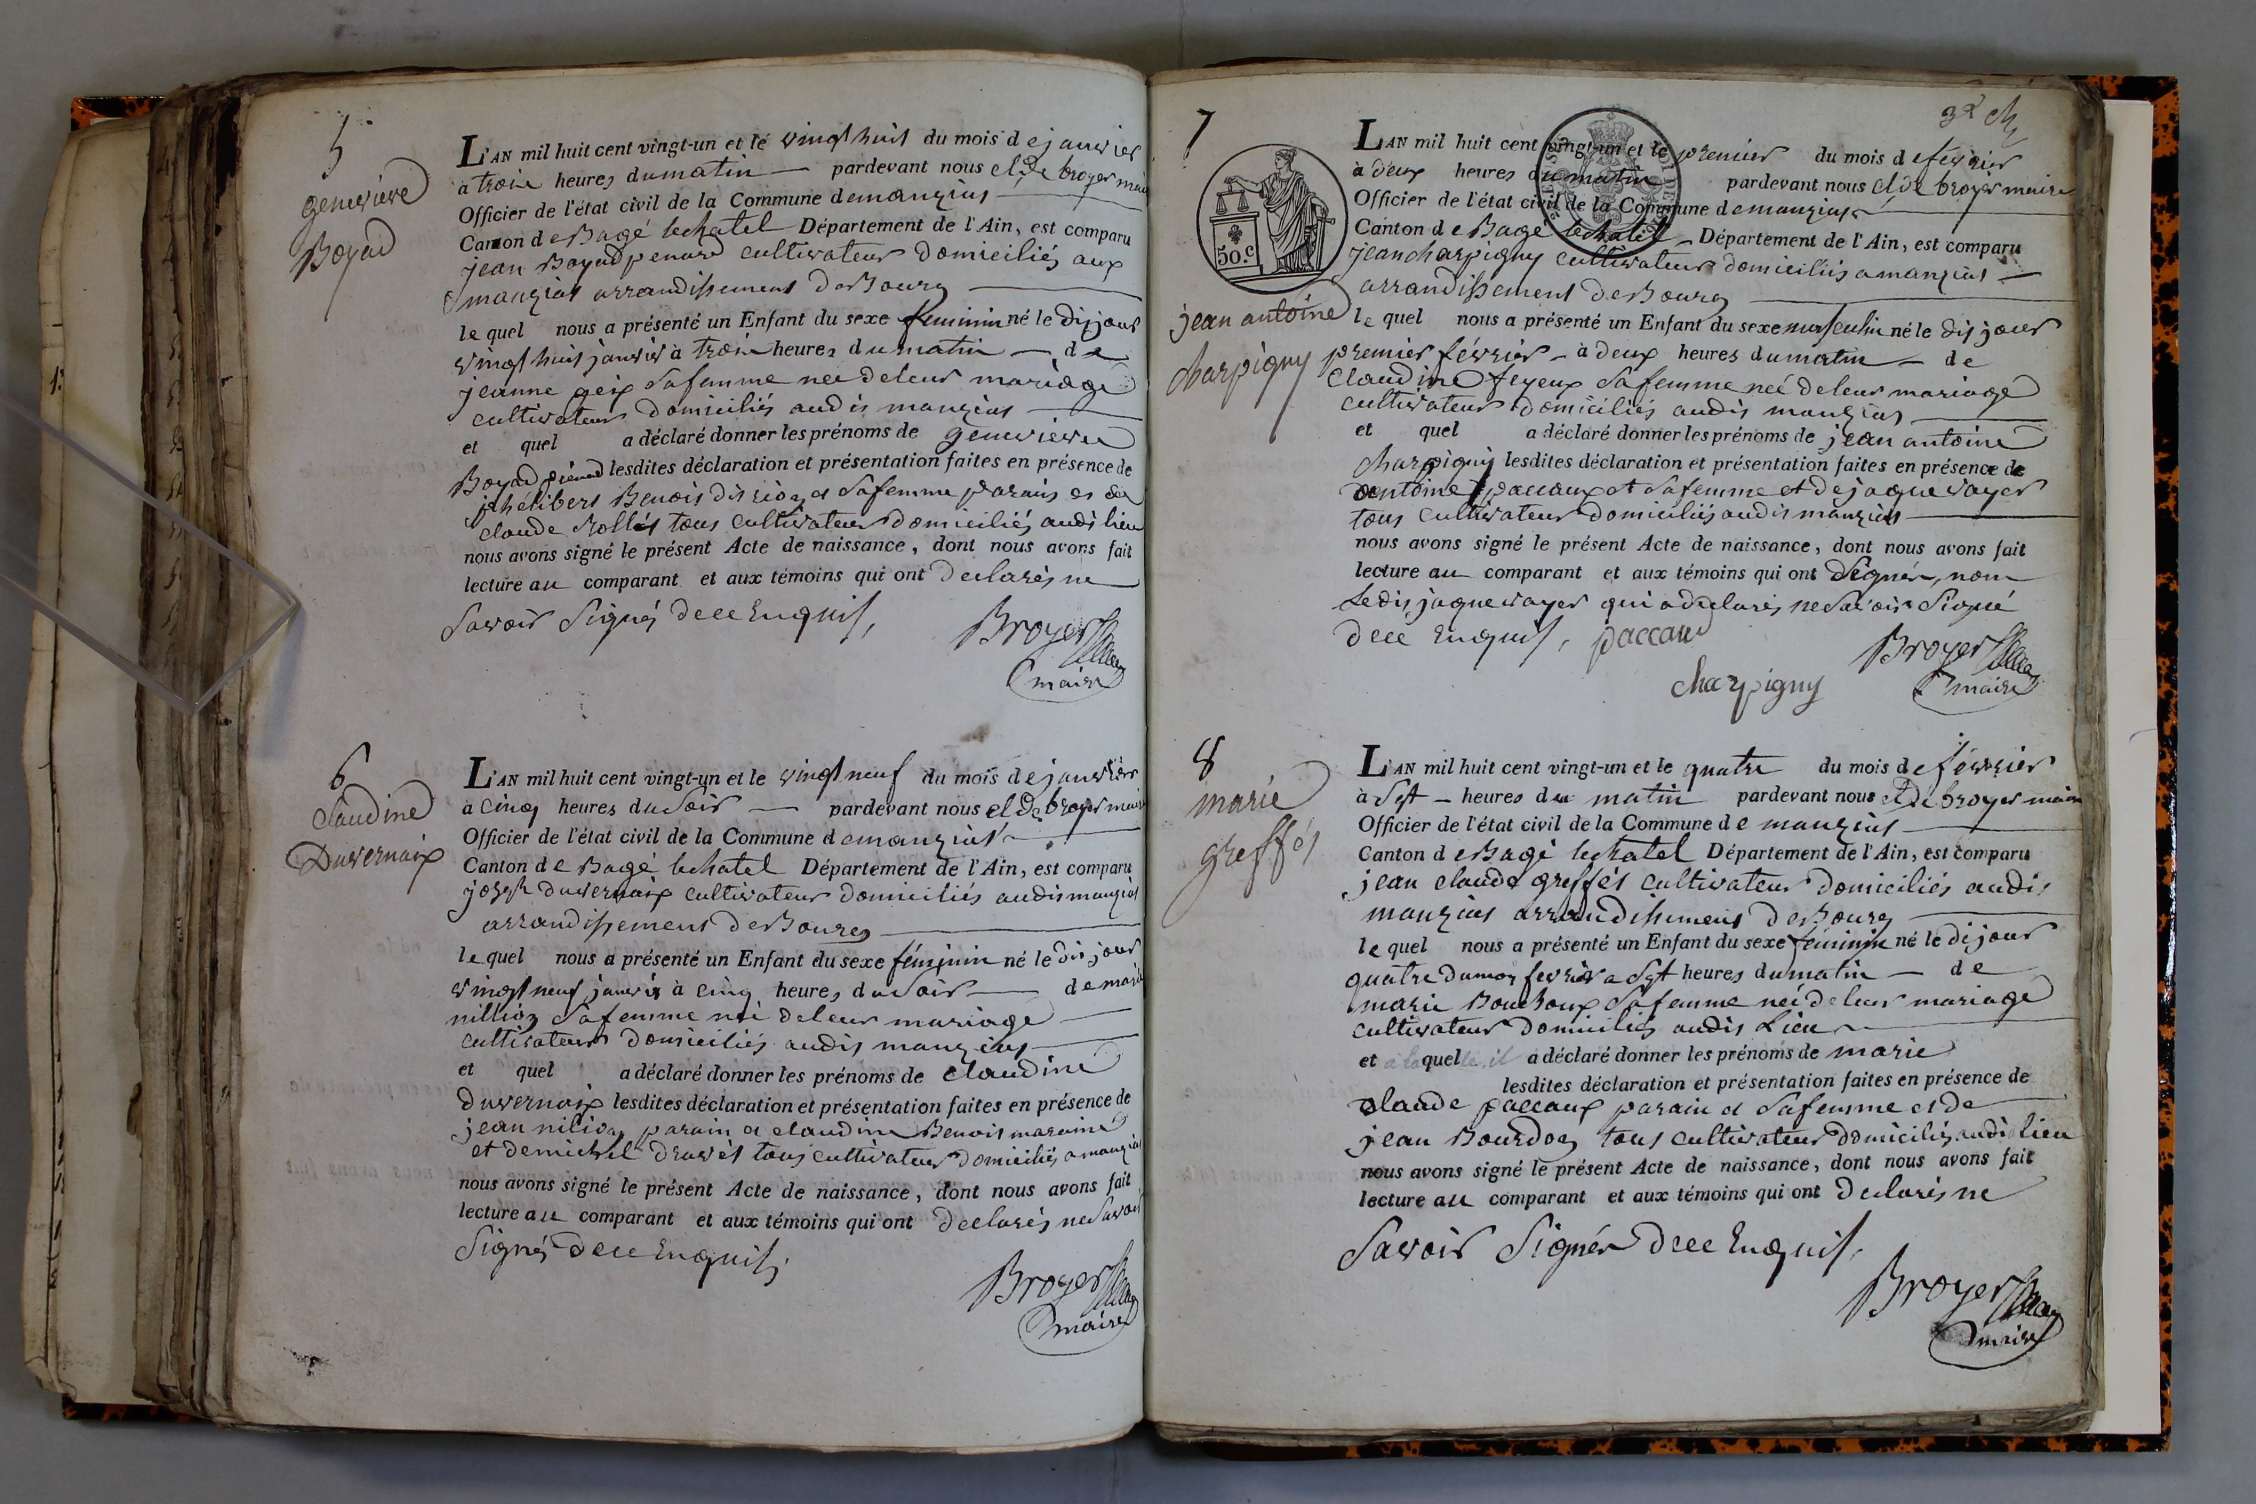 5
genevieve
Boyad
L'AN mil huit cent vingt-un et le vingt huit du mois de janvier
à troie heures du matin pardevant nous cl. de broyer maire
Officier de l'état civil de la Commune de manzias
Canton de Bagé le chatel Département de l'Ain, est comparu
jean Boyad penard cultivateur domiciliés aux
manzias arrandissement de Bourg
le quel nous a présenté un Enfant du sexe feminin né le dijour
vingt huit janvier à troie heures du matin de
jeanne geix sa femme neé de leur mariage
cultivateur domiciliés audis manzias
et quel a déclaré donner les prénoms de genevieve
Boyad piénad lesdites déclaration et présentation faites en présence de
phélibert Benois dit rion et sa femme parain et de
claude rollés tous cultivateur domiciliés audi lieu
nous avons signé le présent Acte de naissance, dont nous avons fait
lecture au comparant et aux témoins qui ont declarés ne
savoir signés de ce enquis,
Broyer
maire
6
claudine
Duvernaix
L'AN mil huit cent vingt-un et le vingt neuf du mois de janvier
à cinq heures du soir pardevant nous cl. de broyer maire
Officier de l'état civil de la Commune de manzias
Canton de Bagé le chatel Département de l'Ain, est comparu
joseph duvernaix cultivateur domiciliés audis manzias
arrandissement de Bourg
le quel nous a présenté un Enfant du sexe féminin né le dis jour
vingt neuf janvier à cinq heures du soir de marie
nillion sa femme neé de leur mariage
cultivateur domiciliés audis manzias
et quel a déclaré donner les prénoms de claudine
duvernaix lesdites déclaration et présentation faites en présence de
jean nilion parain et claudine Benois maraine
et de michel dravet tous cultivateur domiciliés a manzias
nous avons signé le présent Acte de naissance, dont nous avons fait
lecture au comparant et aux témoins qui ont declarés ne savoir
signés de ce enquis,
Broyer
maire
7
50.c
jean antoine
charpigny
L'AN mil huit cent vingt-un et le premier du mois de février
à deux heures du matin pardevant nous cl. de broyer maire
Officier de l'état civil de la Commune de manzias
Canton de Bagé le chatel Département de l'Ain, est comparu
jean charpigny cultivateur domiciliés a manzias
arrandissement de Bourg
le quel nous a présenté un Enfant du sexe mersculin né le dis jour
premier février à deux heures du matin de
claudine feyeux sa femme neé de leur mariage
cultivateur domiciliés audis manzias
et quel a déclaré donner les prénoms de jean antoine
charpigny lesdites déclaration et présentation faites en présence de
antoine paccaux et sa femme et de jaque vayer
tous cultivateur domiciliés audis manzias
nous avons signé le présent Acte de naissance, dont nous avons fait
lecture au comparant et aux témoins qui ont signés, nom
ledis jaque vayer qui a declarés ne savoir signé
de ce enquis, paccaud
Broyer
charpigny
maire
8
marie
greffés
L'AN mil huit cent vingt-un et le quatre du mois de février
à sept heures du matin pardevant nous cl. de broyer maire
Officier de l'état civil de la Commune de manzias
Canton de Bagé le chatel Département de l'Ain, est comparu
jean claude greffés cultivateur domiciliés audis
manzias arrandissement de Bourg
le quel nous a présenté un Enfant du sexe féminin né le dijour
quatre du mois fevrier a sept heures du matin de
marie Bouchoux sa femme neé de leur mariage
cultivateur domiciliés audis lieu
et à laquelle il a déclaré donner les prénoms de marie
lesdites déclaration et présentation faites en présence de
claude paccaux parain et sa femme et de
jean Bourdon tous cultivateur domiciliés audi lieu
nous avons signé le présent Acte de naissance, dont nous avons fait
lecture au comparant et aux témoins qui ont declarés ne
savoir signér de ce enquis,
Broyer
maire